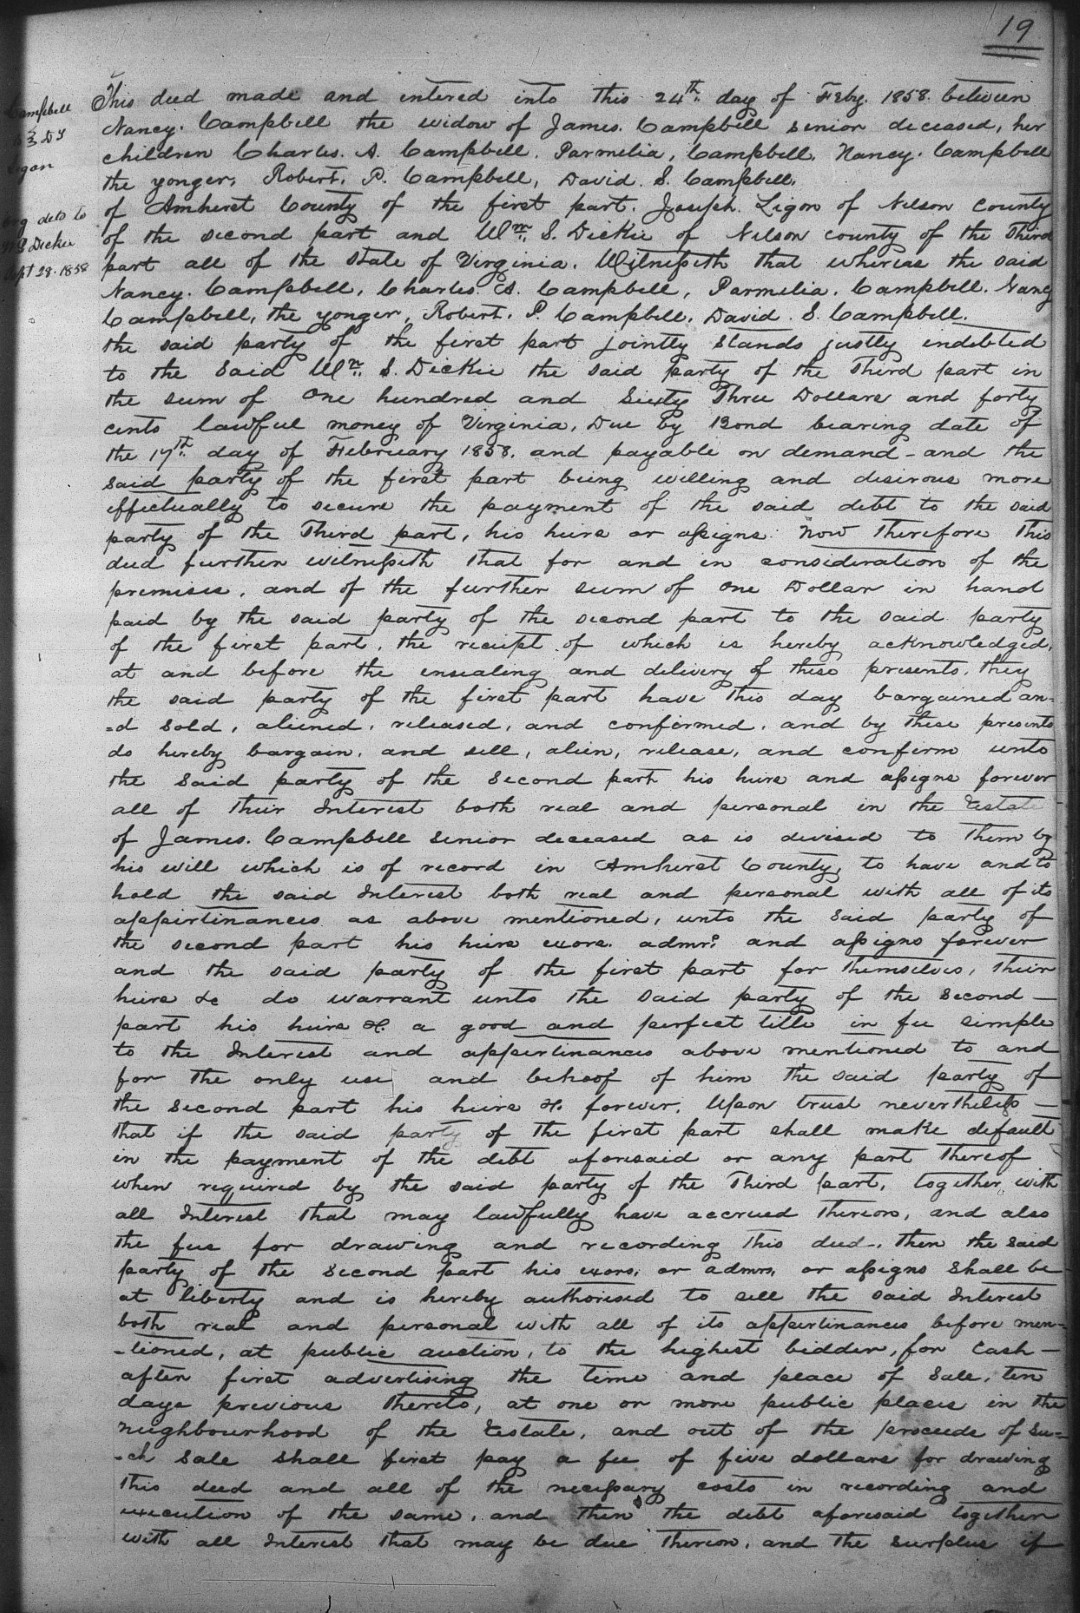 19
Campbell
to } D T
Ligon
Org deld to
Wm S Dickie
Sept 28. 1858
This deed made and entered into this 24th. day of Feby. 1858. between
Nancy. Campbell the widow of James. Campbell senior deceased, her
children Charles. A. Campbell. Parmelia, Campbell. Nancy. Campbell
the yonger, Robert. P. Campbell, David. S. Campbell.
of Amherst County of the first part. Joseph. Ligon of Nelson County
of the second part and Wm. S. Dickie of Nelson county of the Third
part all of the State of Virginia. Witnesseth that whereas the said
Nancy. Campbell, Charles. A. Campbell, Parmelia. Campbell. Nancy
Campbell, the yonger, Robert. P. Campbell. David. S. Campbell.
the said party of the first part jointly stands justly indebted
to the said Wm. S. Dickie the said party of the Third part in
the sum of One hundred and Sixty Three Dollars and forty
cents lawful money of Virginia, Due by Bond bearing date of
the 17th. day of February 1858. and payable on demand - and the
said party of the first part being willing and desirous more
effectually to secure the payment of the said debt to the said
party of the Third part, his heirs or assigns. Now Therefore This
deed further witnesseth that for and in consideration of the
premises. and of the further sum of One Dollar in hand
paid by the said party of the second part to the said party
of the first part. the receipt of which is hereby acknowledged,
at and before the ensealing and delivery of these presents. they
the said party of the first part have this day bargained an-
=d sold, aliened, released, and confirmed. and by these presents
do hereby bargain. and sell, alien, release, and confirm unto
the said party of the second part his heirs and assigns forever
all of their Interest both real and personal in the Estate
of James. Campbell senior deceased as is devised to them by
his will which is of record in Amherst County, to have and to
hold the said Interest both real and personal with all of its
appertinances as above mentioned, unto the said party of
the second part his heirs exors. admrs. and assigns forever
and the said party of the first part for themselves, their
heirs &c do warrant unto the said party of the second -
part his heirs &c. a good and perfect title in fee simple
to the Interest and appertinances above mentioned to and
for the only use and behoof of him the said party of
the second part his heirs &c forever. Upon trust nevertheless -
that if the said party of the first part shall make default
in the payment of the debt aforesaid or any part thereof
when required by the said party of the Third part, together with
all Interest that may lawfully have accrued thereon, and also
the fees for drawing and recording this deed -. then the said
party of the second part his exors. or admrs. or assigns shall be
at liberty and is hereby authorised to sell the said Interest
both real and personal with all of its appertinances before men-
-tioned, at public auction, to the highest bidder, for Cash -
after first advertising the time and place of Sale, ten
days previous thereto, at one or more public places in the
neighbourhood of the Estate, and out of the proceeds of su=
-ch sale shall first pay a fee of five dollars for drawing
this deed and all of the necessary costs in recording and
execution of the same, and then the debt aforesaid together
with all Interest that may be due thereon, and the surplus if